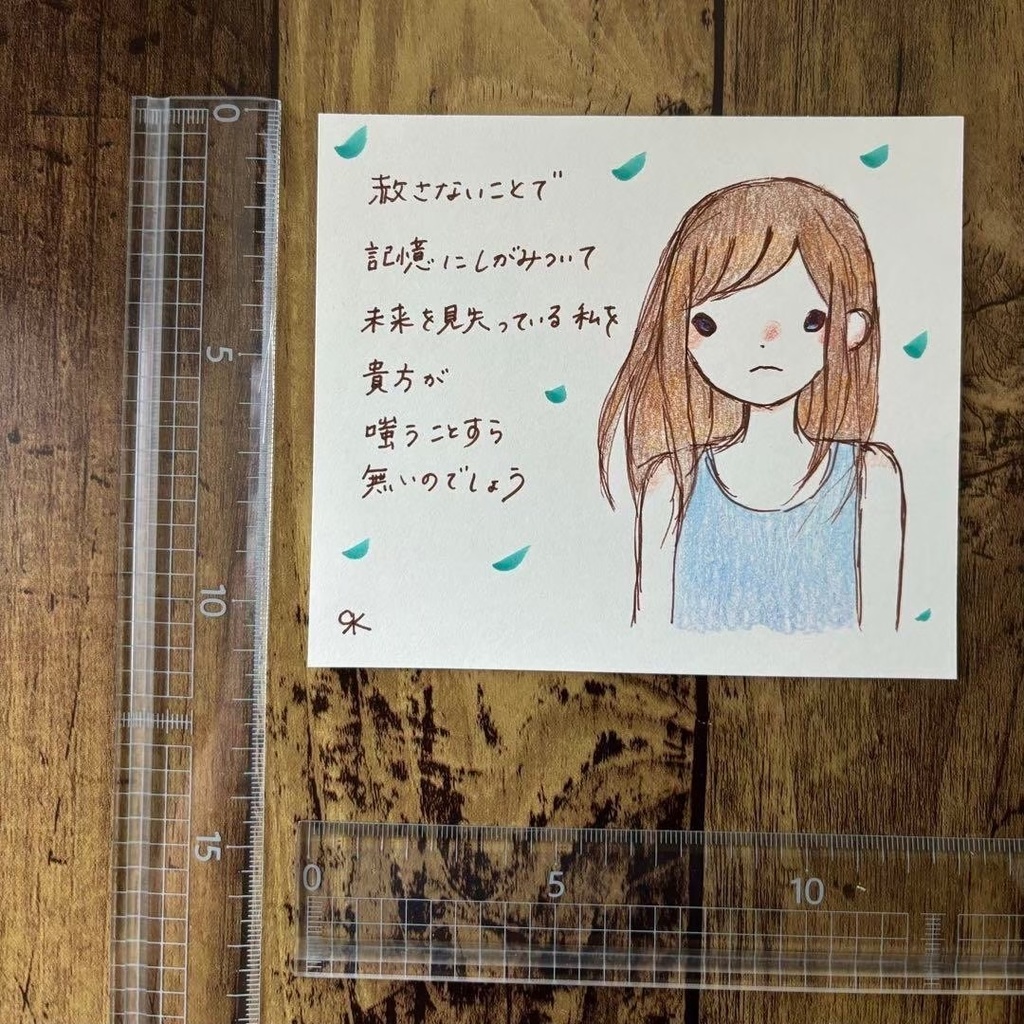 赦さないことで
記憶にしがみついて
未来を見失っている私を
貴方が
嗤うことすら
無いのでしょう
0
5
10
15
0
5
10